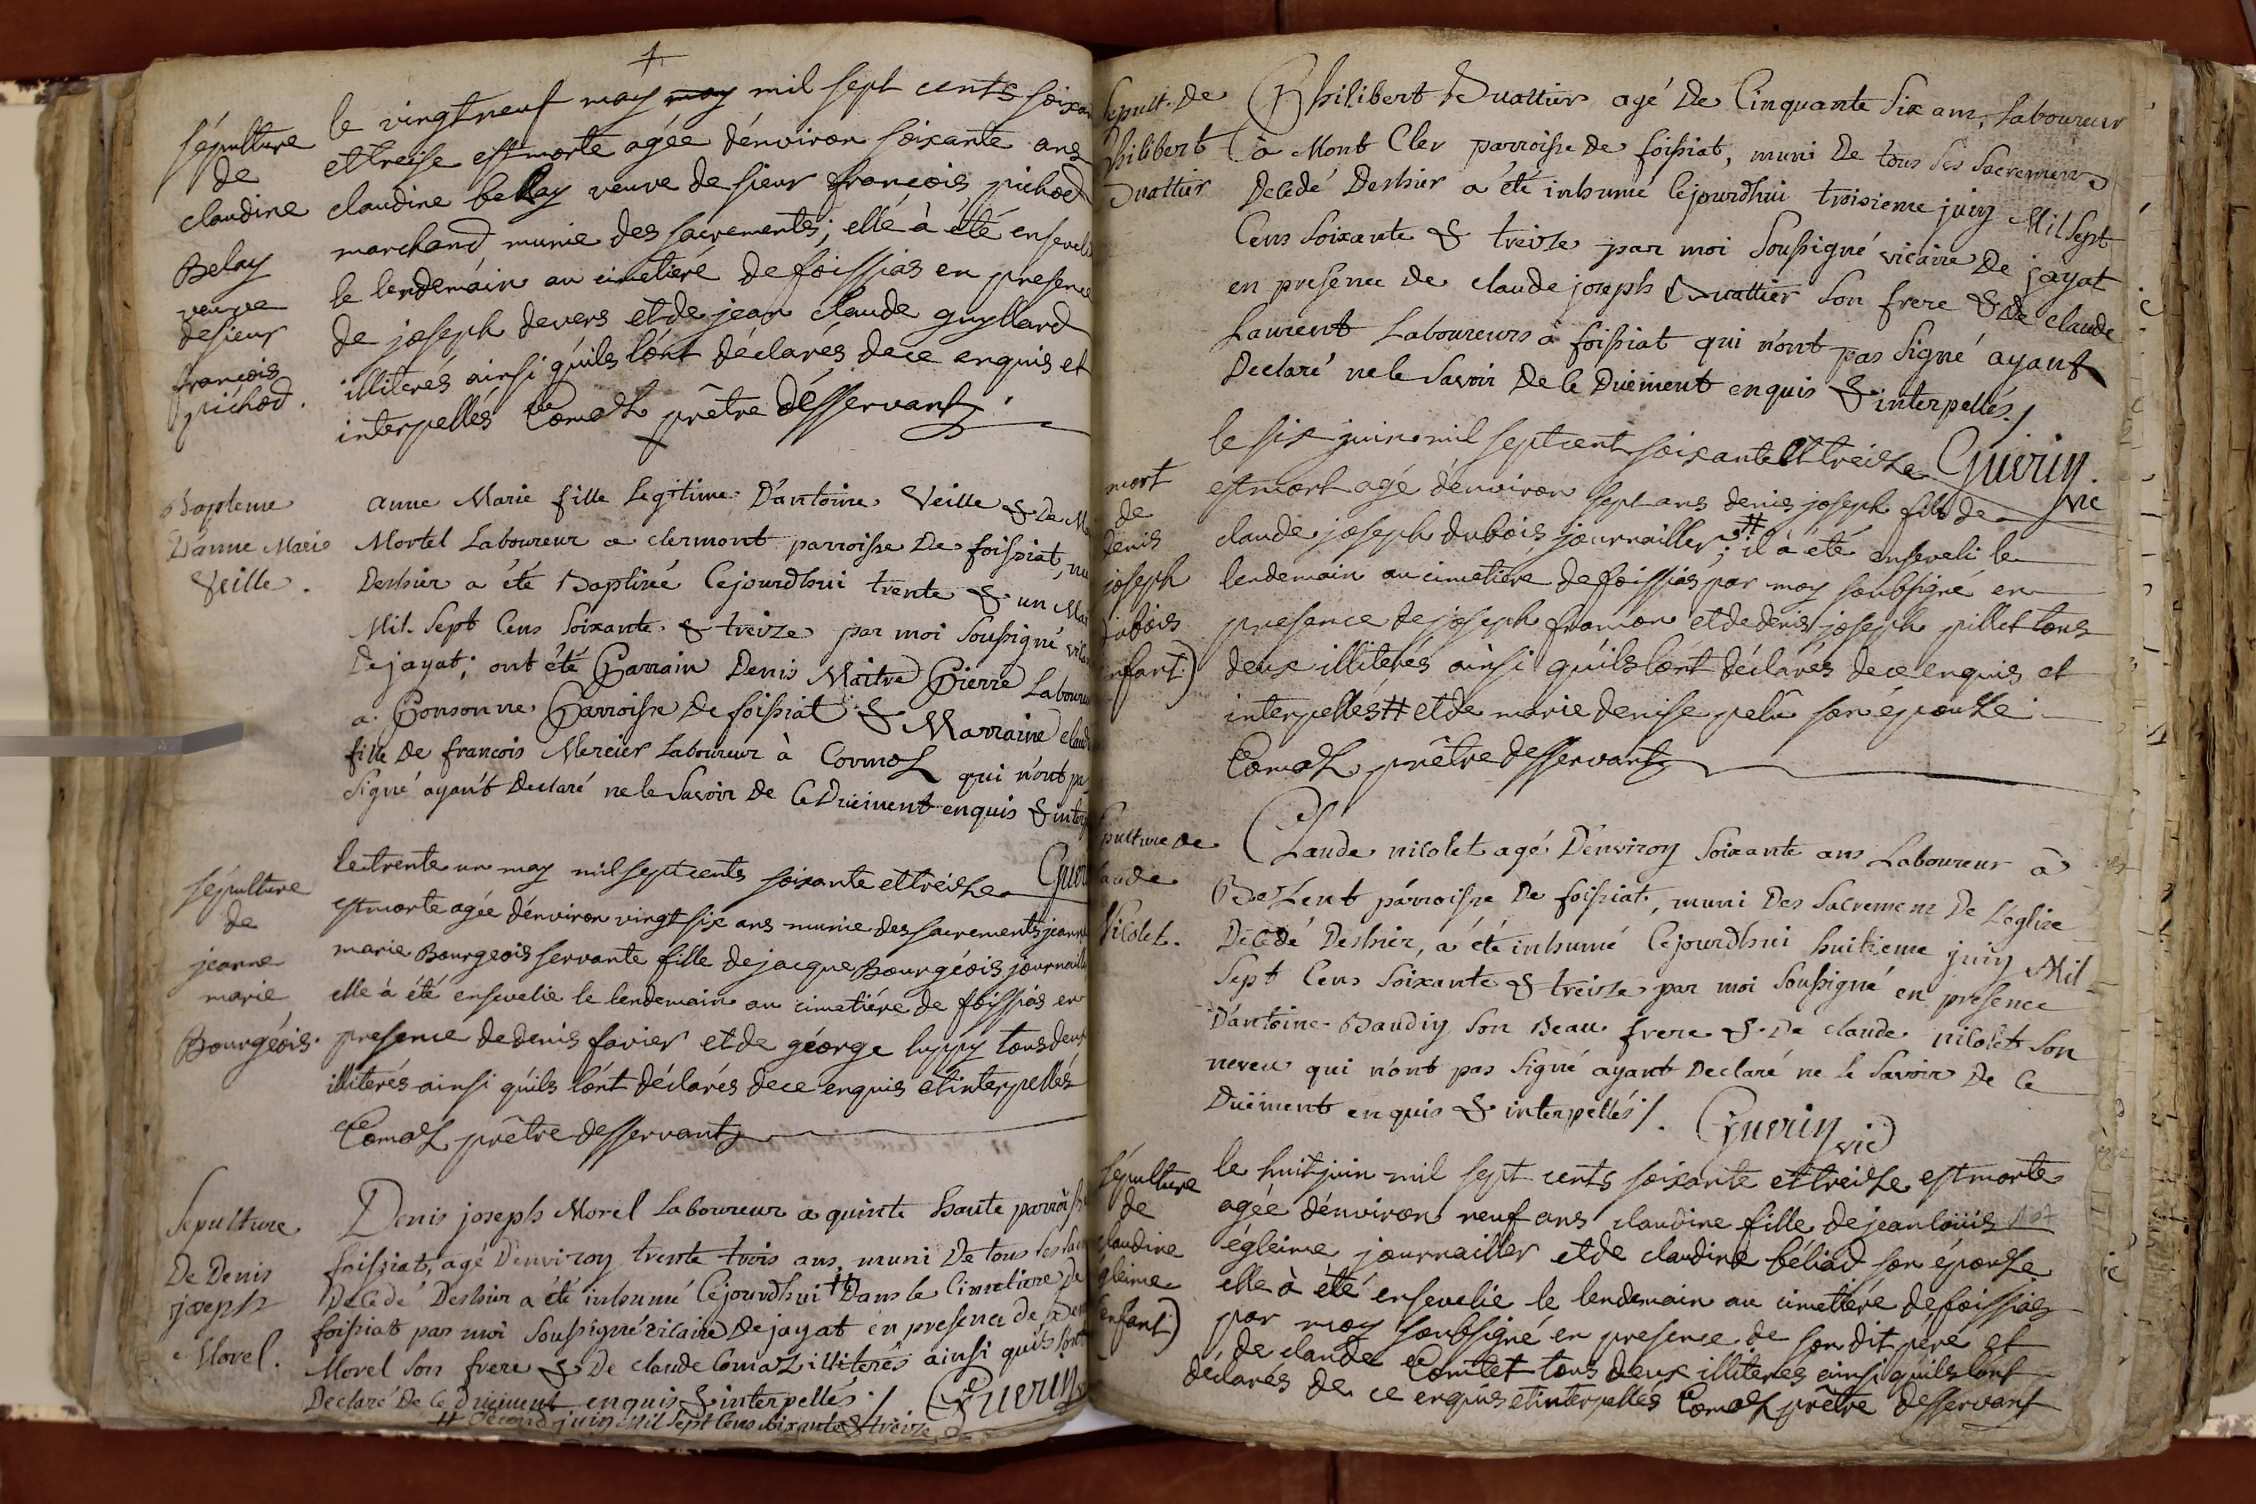 sépulture
de
claudine
Belay
veuve
de sieur
françois
pichod.
le vingt neuf may may mil sept cents soixan
et treise est morte agée dénviron soixante ans
claudine bellay veuve de sieur françois pichod
marchand munie des sacrements; elle à été enseveli
le lendemáin au cimetiére de foissias en presence
de joseph devers et de jean claude guyllard
illiterés ainsi qúils lont déclarés de ce enquis et
interpellés Comaz prêtre désservant.
Bapteme
D'anne Marie
Veille.
anne Marie fille legitime D'antoine Veille & De Ma
Mortel Laboureur a clermont parroisse De foissiat, né
Deshier a été Baptizé Cejourdhui trente & un May
Mil Sept Cens Soixante & treize par moi Soussigné vicai
De jayat; ont été Parrain Denis Maitre Pierre Labour
a Ponsonne Parroisse De foissiat & Marraine claud
fille De francois Mercier Laboureur à Cormoz qui n'ont pa
Signé ayant Declaré ne le Savoir De Ce Duëment enquis & inter
Guer
sépulture
de
jeanne
marie
Bourgéois.
le trente un may mil sept cents soixante et treize
est morte agée dénviron vingt six ans munie des sacrements jeanne
marie Bourgeois servante fille de jacque Bourgéois journaill
elle à été ensevelie le lendemain au cimetiére de foissias en
presence de denis favier et de géorge luppy tous deux
illiterés ainsi qúils lónt déclarés de ce enquis et interpellés
Comaz prêtre desservant
Sepulture
De Denis
joseph
Morel.
Denis joseph Morel Laboureur a quinte haute parroiss
foissiat, agé D'enviroy trente trois ans, muni De tous les sac
Decedé Deshier a été inhumé Cejourdhui # Dans le Cimetiere De
foissiat par moi Soussigné vicaire De jayat en presence de
Morel Son frere & De claude Comaz illiterés ainsi quils lont
Declaré De Ce Duëment enquis & interpellés./ Guerin
# Second juin Mil Sept Cens Soixante & treize
Sepult. De
Philibert
Buattier
Philibert Buattier agé De Cinquante Six ans, Laboureur
à Mont Cler parroisse De foissiat, muni De tous Ses Sacremens
Decedé Deshier a été inhumé Cejourdhui troisieme juin Mil Sept
Cens Soixante & treize par moi Soussigné vicaire De jayat
en presence De claude joseph Buattier Son frere & De claude
Laurent Laboureurs à foissiat qui n'ont pas Signé ayant
Declaré ne le Savoir De Ce Duëment enquis & interpellés./
Guerin vic
mort
de
denis
joseph
dubois
enfant)
le six juin mil sept cent soixante et treize
est mort agé dénviron sept ans denis joseph fils de
claude joseph dubois journailler #; il à été enseveli le
lendemain au cimetiére de foissias par moy soubsigné en
presence de joseph framon et de denis joseph pillet tous
deux illiterés ainsi qúils lont déclarés de ce enquis et
interpellés # et de marie denise pelu son épouse
Comaz prêtre desservant
pulture De
aude
Nicolet.
Claude nicolet agé D'enviroy Soixante ans Laboureur à
Bezent párroisse De foissiat, muni Des Sacremens De L'eglise
Decedé Deshier, a été inhumé Cejourdhui huitieme juin Mil
Sept Cens Soixante & treize par moi Soussigné en presence
D'antoine Baudin Son Beau frere & De claude nicolet Son
neveu qui n'ont pas Signé ayant Declaré ne le Savoir De Ce
Duëment enquis & interpellés/. Guerin vic
sépulture
de
claudine
égleime
enfant)
le huit juin mil sept cents soixante et treize est morte
agée dénviron neuf ans claudine fille de jean loüis
égleime journailler et de claudine béliad son épouse
elle à été ensevelie le lendemain au cimetiére de foissias
par moy soubsigné en presence de son dit pere et
de claude Comtet tous deux illiterés ainsi quils lont
déclarés de ce enquis et interpellés Comaz prêtre desservant